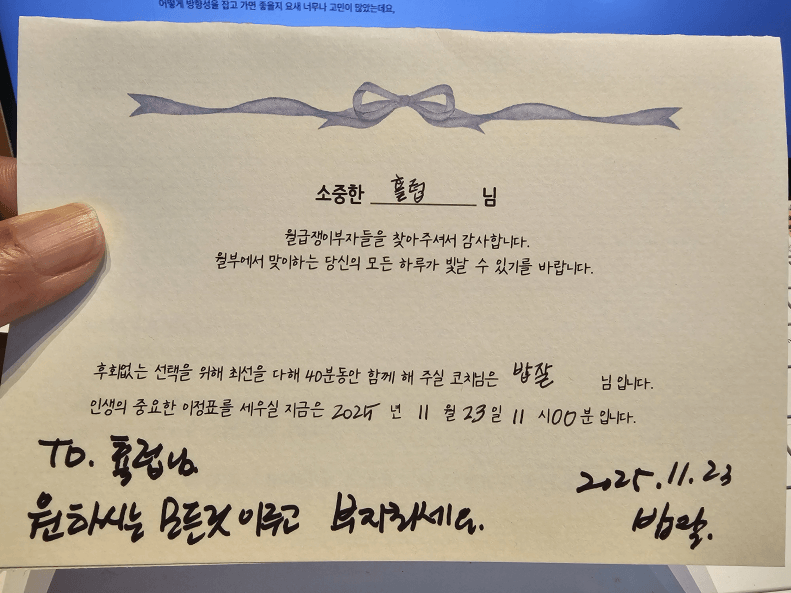 어떻게 방향성을 잡고 가면 좋을지 요새 너무나 고민이 많았는데요.
소중한 흘럽 님
월급쟁이부자들을 찾아주셔서 감사합니다.
월부에서 맞이하는 당신의 모든 하루가 빛날 수 있기를 바랍니다.
후회없는 선택을 위해 최선을 다해 40분동안 함께 해 주실 코치님은 밥잘 님 입니다.
인생의 중요한 이정표를 세우실 지금은 2025 년 11 월 23 일 11 시 00 분 입니다.
TO. 흘럽님.
원하시는 모든것 이루고 부자되세요.
2025.11.23
밥잘.